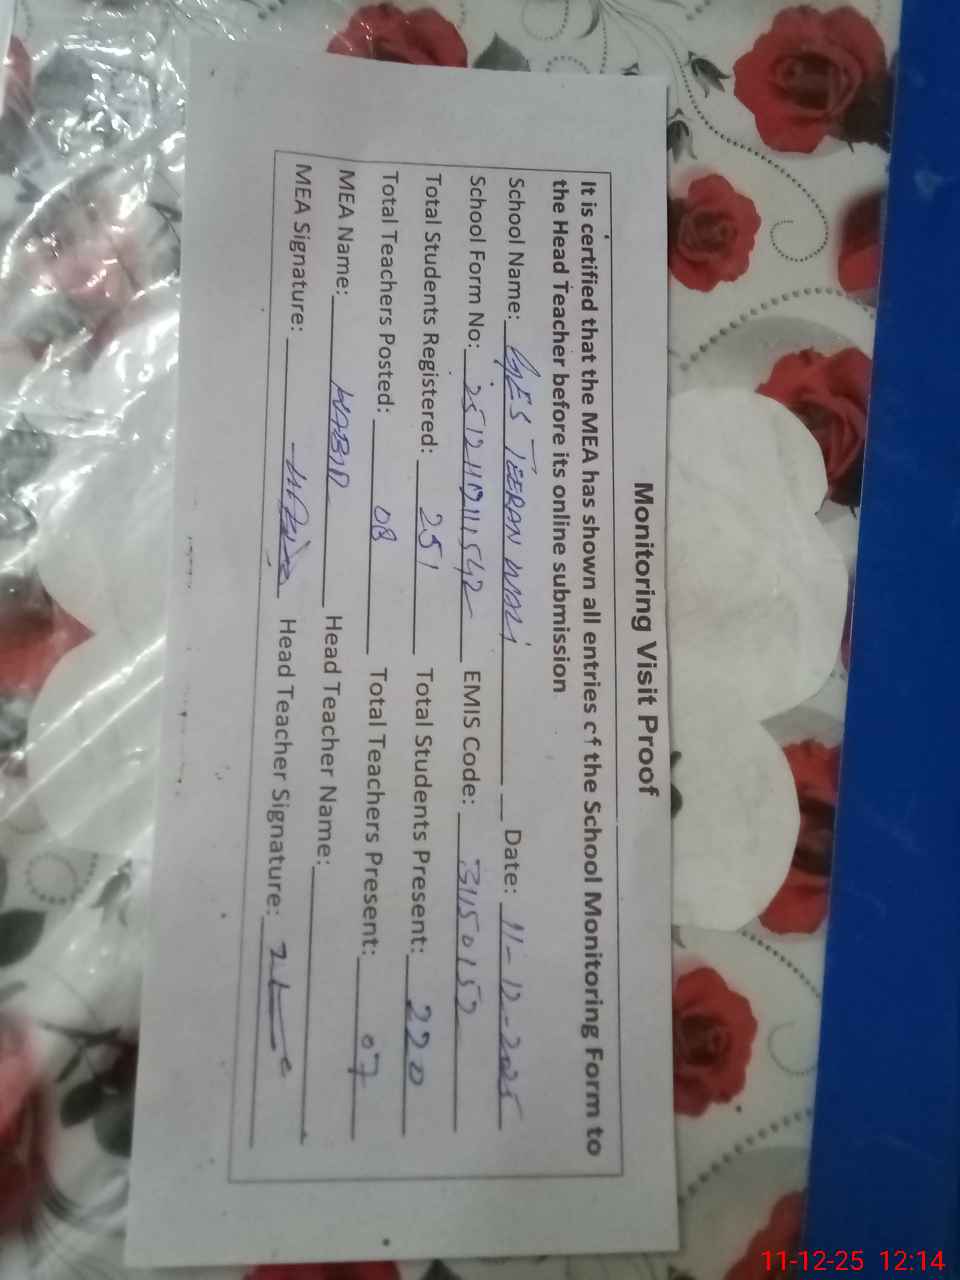 Monitoring Visit Proof
It is certified that the MEA has shown all entries of the School Monitoring Form to
the Head Teacher before its online submission
School Name: GES TEERAN WALI Date: 11-12-2025
School Form No: 251211011542 EMIS Code: 31150152
Total Students Registered: 251 Total Students Present: 220
Total Teachers Posted: 08 Total Teachers Present: 07
MEA Name: Head Teacher Name:
MEA Signature: Head Teacher Signature:
11-12-25 12:14